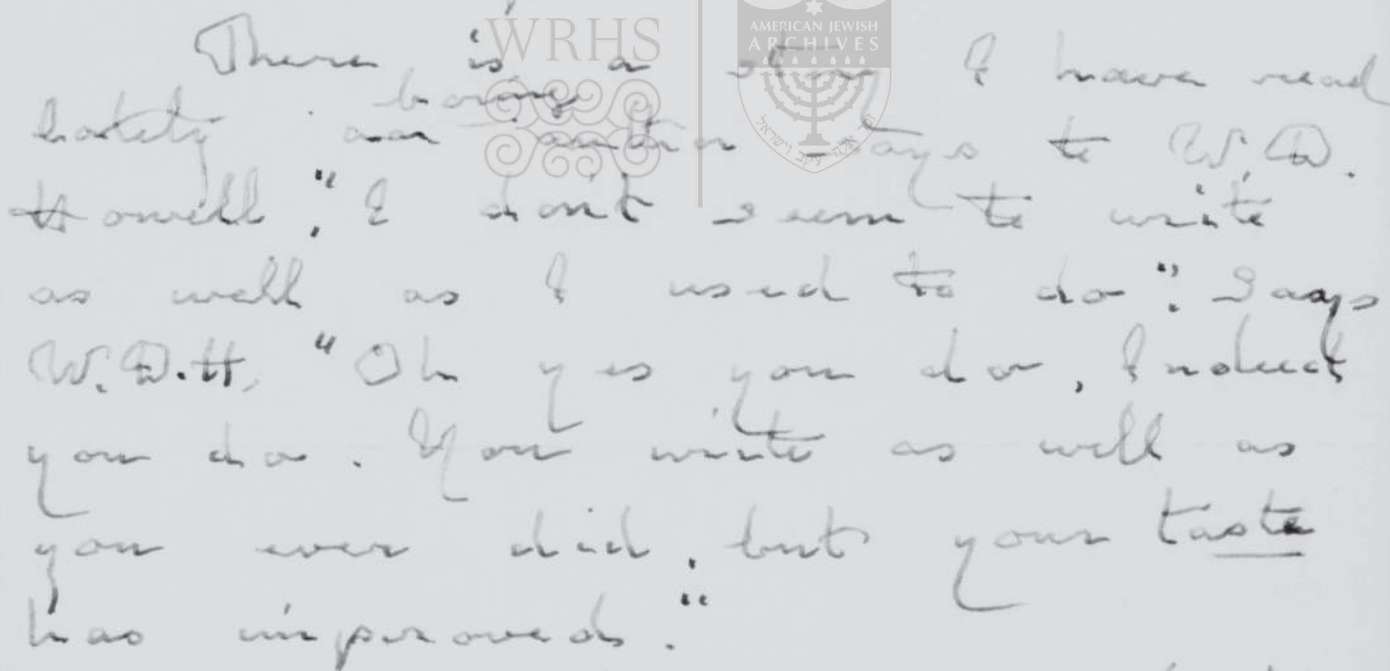 WRHS
AMERICAN JEWISH
ARCHIVES
There is a story I have read
boring
lately an author says to W.D.
Howell, "I don't seem to write
as well as I used to do". Says
W.D.H, "Oh yes you do, Indeed
you do. You write as well as
you ever did, but your taste
has improved."